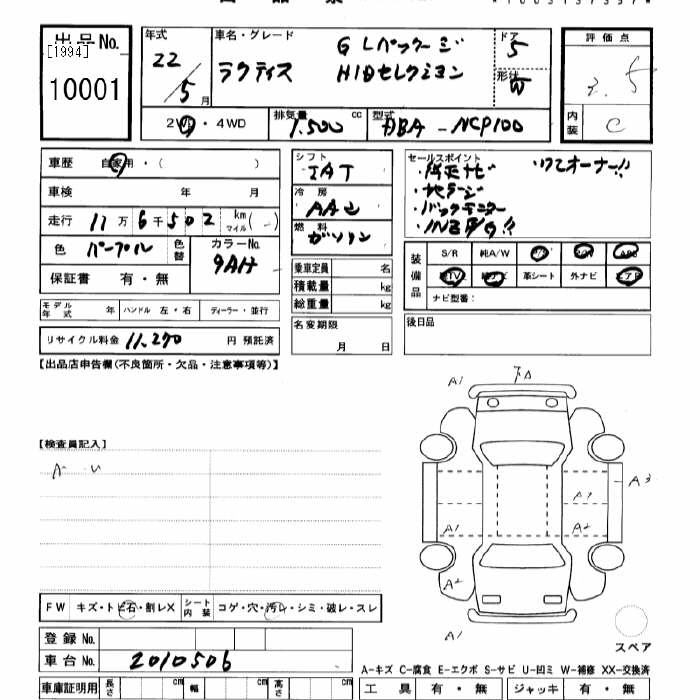 出品No.
[1994]
10001
年式 22/5月
車名・グレード
ラクティス
G Lパッケージ
HIDセレクション
ドア 5
形状 W
評価点 3.5
内装 C
2WD・4WD
排気量 1,500 cc
型式 DBA-NCP100
車歴 自家用・( )
車検 年 月
走行 11万6千502 km マイル( )
色 パープル
色替
カラーNo. 9AH
保証書 有・無
シフト IAT
冷房 AAC
燃料 ガソリン
乗車定員 名
積載量 kg
総重量 kg
セールスポイント
・純正ナビ
・ワンオーナー!!
・地デジ
・バックモニター
装備品
S/R 純A/W P/S P/W ABS
TV 純ナビ 革シート 外ナビ エアB
ナビ型番:
モデル年式 年 ハンドル 左・右 ディーラー・並行
名変期限
月 日
後日品
リサイクル料金 11,270 円 預託済
【出品店申告欄(不良箇所・欠品・注意事項等)】
【検査員記入】
A U
A1
A1 A3
A1 A2
A2
A1
スペア
FW キズ・トビ石・割レX シート内装 コゲ・穴・汚レ・シミ・破レ・スレ
登録No.
車台No. 2010506
A-キズ C-腐食 E-エクボ S-サビ U-凹ミ W-補修 XX-交換済
車庫証明用 長さ cm 幅 cm 高さ cm
工具 有・無 ジャッキ 有・無